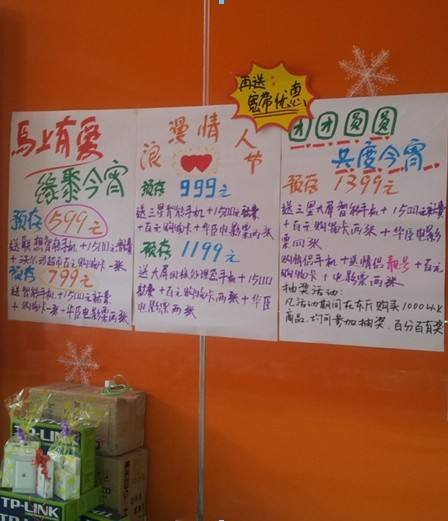 再送
宽带优惠
馬上有爱
缘聚今宵
预存599元
送联想智能手机+1500元话费
+沃尔玛超市百元购物卡一张
预存799元
送智能手机+1500元话费
+购物卡一张+华臣电影票两张
浪漫情人节
预存999元
送三星智能手机+1500元话费
+百元购物卡+华臣电影票两张
预存1199元
送大屏四核处理器手机+1500
话费+百元购物卡两张+华臣
电影票两张
团团圆圆
共度今宵
预存1399元
送三星大屏智能手机+1500元话费
+百元购物卡两张+华臣电影
票四张
购情侣手机+送情侣靓号+百元
购物卡+电影票两张
抽奖活动:
凡活动期间在本厅购买1000以上
商品均可参加抽奖,百分百有奖
TP-LINK
TP-LINK
TP-LINK